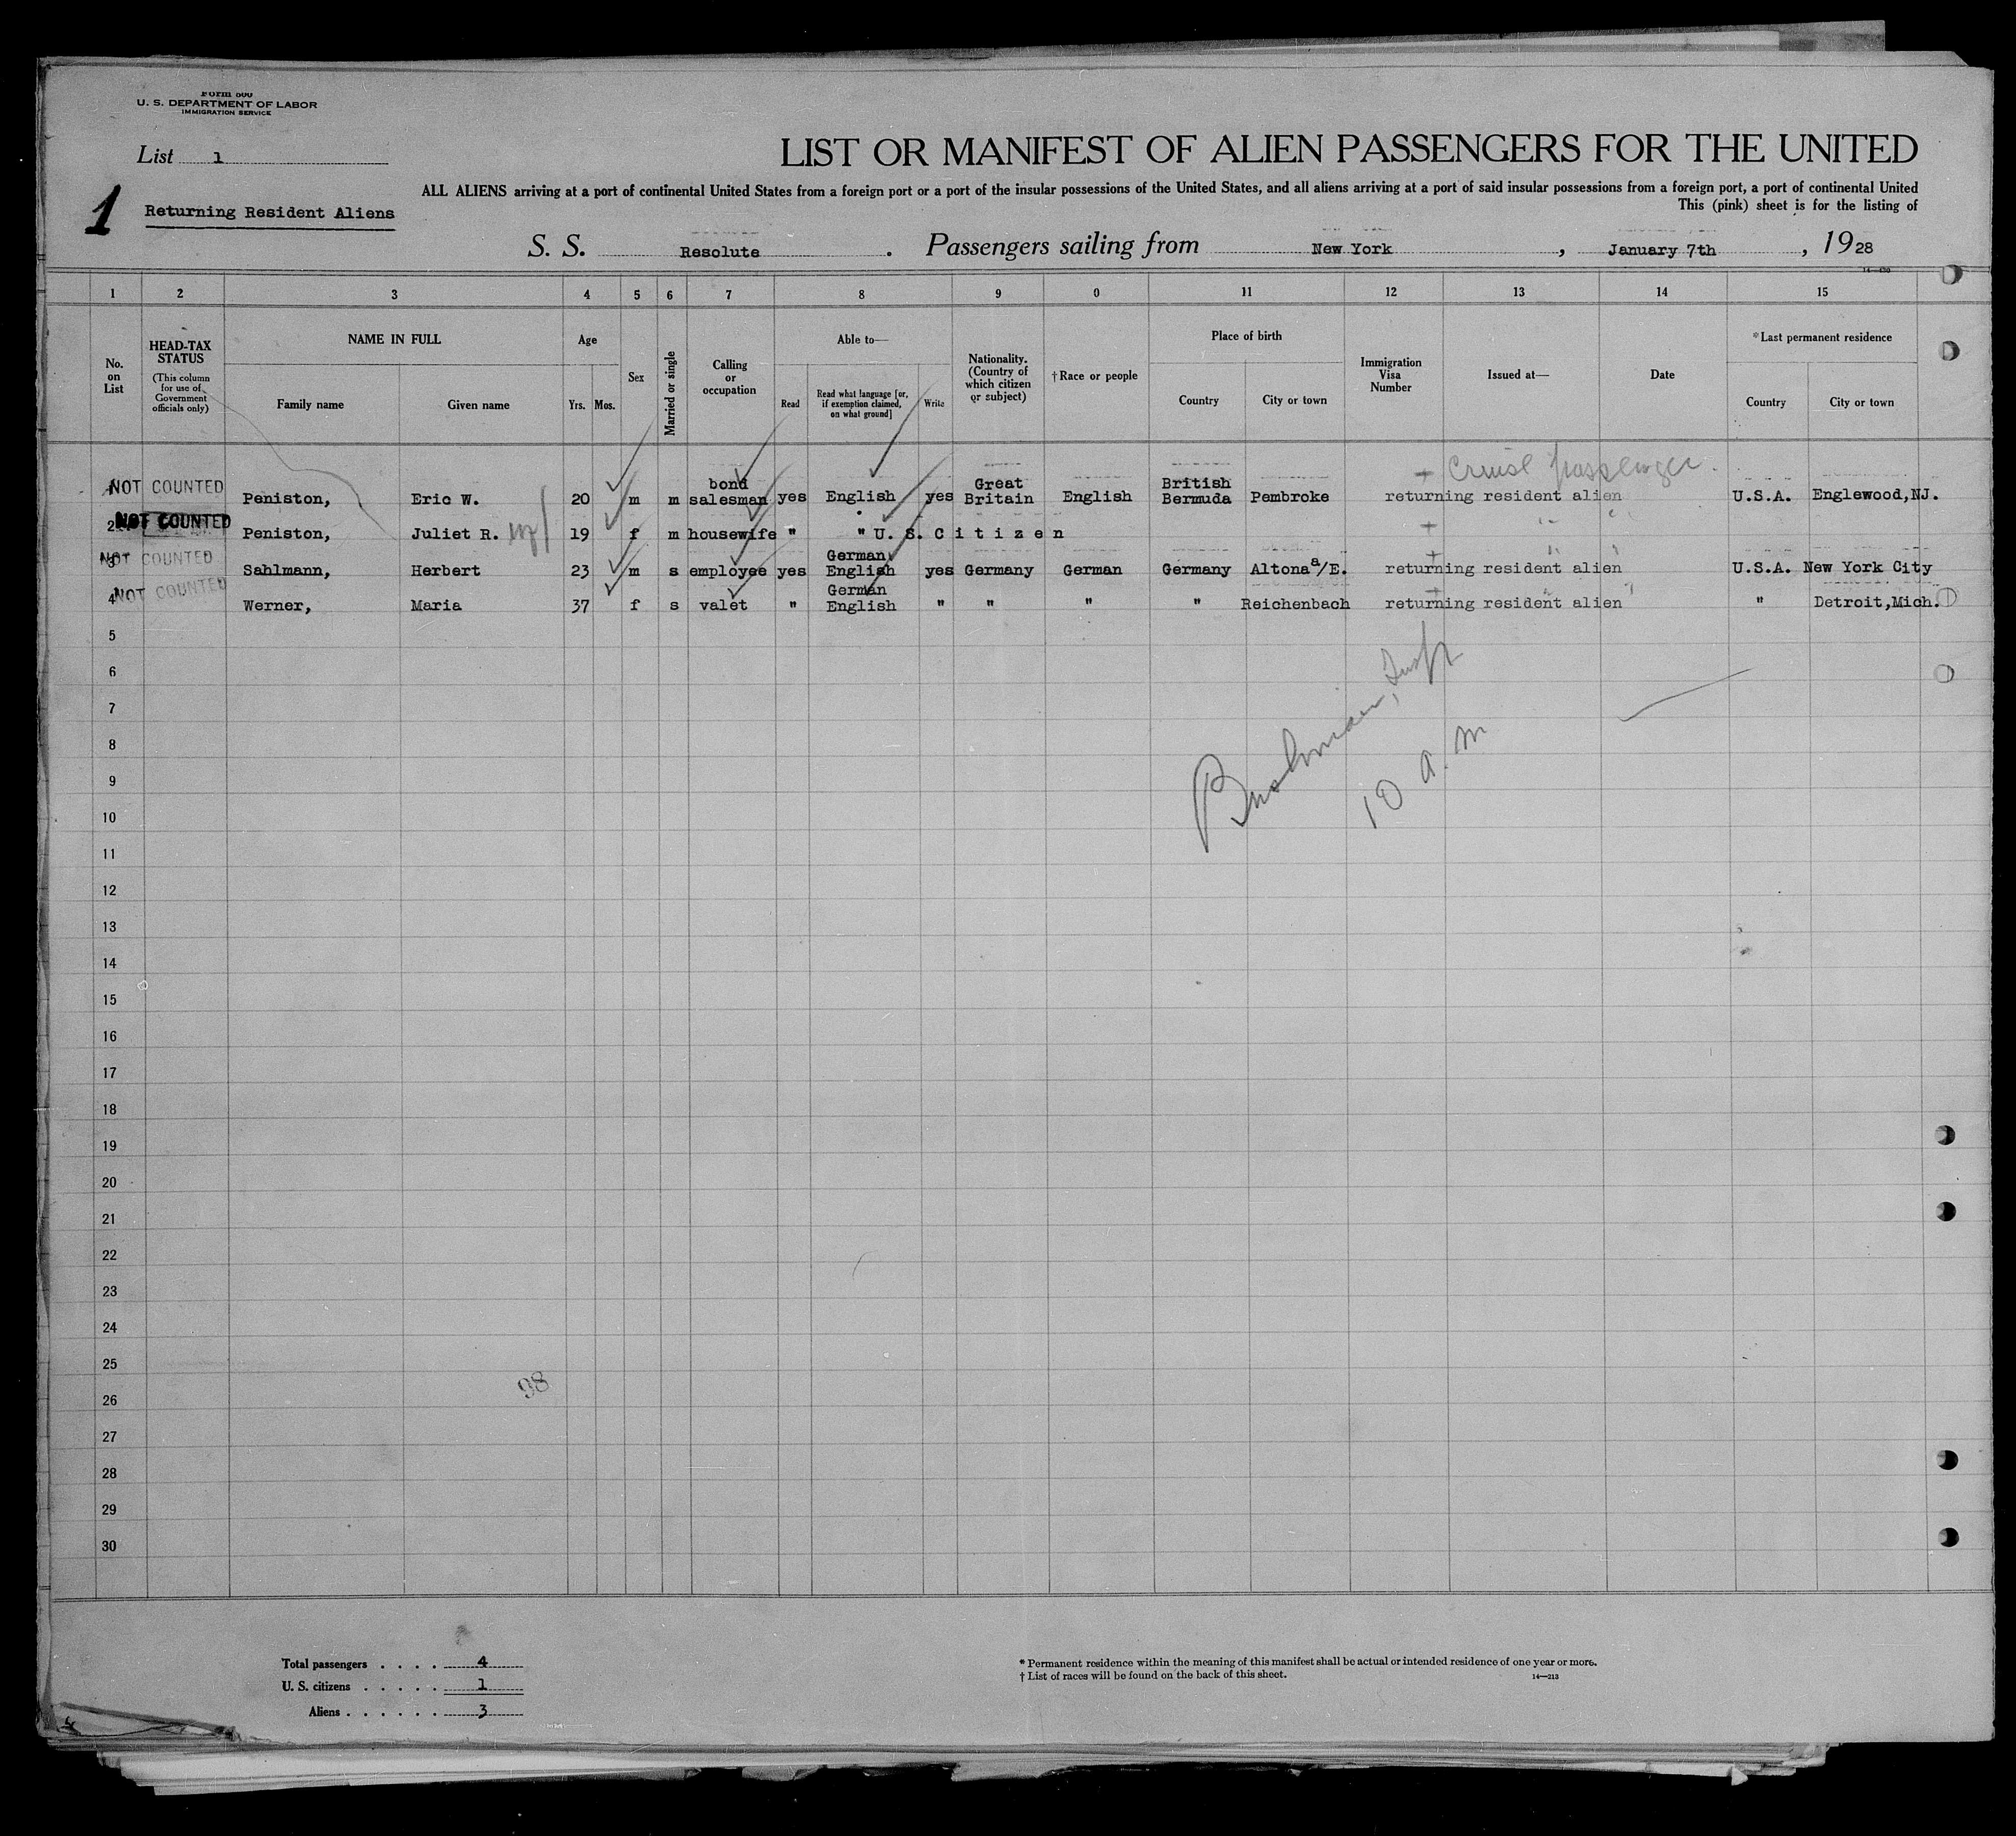 Form 500
U. S. DEPARTMENT OF LABOR
IMMIGRATION SERVICE
List 1
LIST OR MANIFEST OF ALIEN PASSENGERS FOR THE UNITED
ALL ALIENS arriving at a port of continental United States from a foreign port or a port of the insular possessions of the United States, and all aliens arriving at a port of said insular possessions from a foreign port, a port of continental United
1 Returning Resident Aliens
This (pink) sheet is for the listing of
S. S. Resolute . Passengers sailing from New York , January 7th , 1928
1 2 3 4 5 6 7 8 9 0 11 12 13 14 15
No. on List
HEAD-TAX STATUS
(This column for use of Government officials only)
NAME IN FULL
Family name Given name
Age
Yrs. Mos.
Sex
Married or single
Calling or occupation
Able to—
Read
Read what language [or, if exemption claimed, on what ground]
Write
Nationality. (Country of which citizen or subject)
†Race or people
Place of birth
Country City or town
Immigration Visa Number
Issued at—
Date
*Last permanent residence
Country City or town
+ Cruise passenger.
NOT COUNTED Peniston, Eric W. 20 m m bond salesman yes English yes Great Britain English British Bermuda Pembroke returning resident alien U.S.A. Englewood,NJ.
2 NOT COUNTED Peniston, Juliet R. 19 f m housewife " " U. S. C i t i z e n + " "
3 NOT COUNTED Sahlmann, Herbert 23 m s employee yes German English yes Germany German Germany Altona a/E. returning resident alien U.S.A. New York City
4 NOT COUNTED Werner, Maria 37 f s valet " German English " " " " Reichenbach returning resident alien " Detroit,Mich.
5
6
7
8
9
10
11
12
13
14
15
16
17
18
19
20
21
22
23
24
25
26
27
28
29
30
Bushman, Insp
10 a.m
98
Total passengers . . . . 4
U. S. citizens . . . . . 1
Aliens . . . . . . 3
* Permanent residence within the meaning of this manifest shall be actual or intended residence of one year or more.
† List of races will be found on the back of this sheet.
14—213